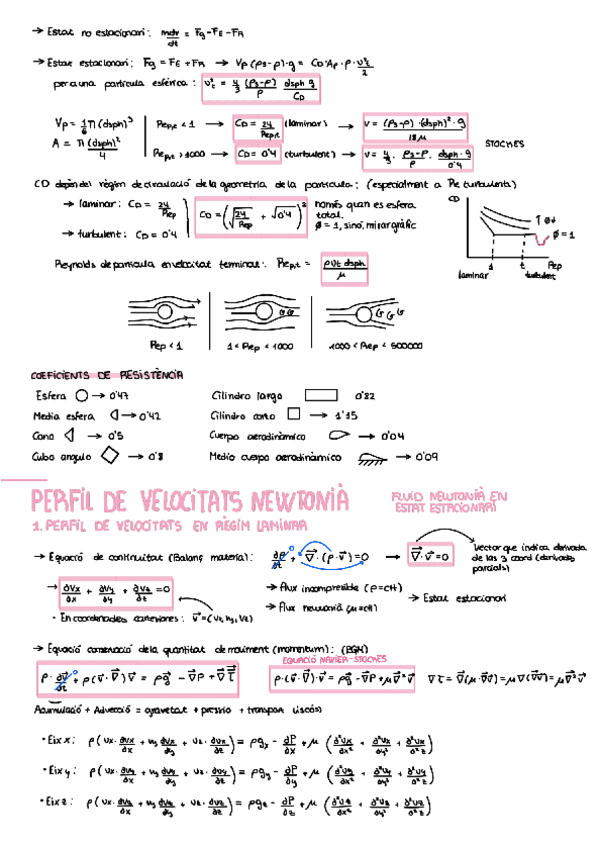 → Estat no estacionari: mdv/dt = Fg - FE - FR
→ Estat estacionari: Fg = FE + FR → Vp(ρs-ρ)·g = CD·Ap·ρ·vt²/2
per a una partícula esfèrica: vt² = 4/3 (ρs-ρ)/ρ dsph g/CD
Vp = 1/6 π(dsph)³ Rep,t < 1 → CD = 24/Rep,t (laminar) → v = (ρs-ρ)·(dsph)²·g/18μ STOCKES
A = π(dsph)²/4 Rep,t > 1000 → CD = 0'4 (turbulent) → v = 4/3 · ρs-ρ/ρ · dsph·g/0'4
CD depèn del règim de circulació de la geometria de la partícula: (especialment a Re turbulents)
→ laminar: CD = 24/Rep CD = (√24/Rep + √0'4)² només quan es esfera total.
→ turbulent: CD = 0'4 ∅ = 1, sinó, mirar gràfic
CD ↑∅↓ ∅=1
1 t Rep
laminar turbulent
Reynolds de partícula en velocitat terminal: Rep,t = ρvt dsph/μ
Rep < 1 1 < Rep < 1000 1000 < Rep < 500000
COEFICIENTS DE RESISTÈNCIA
Esfera → 0'47 Cilindro largo 0'82
Media esfera → 0'42 Cilindro corto → 1'15
Cono → 0'5 Cuerpo aerodinàmico → 0'04
Cubo angulo → 0'8 Medio cuerpo aerodinàmico → 0'09
PERFIL DE VELOCITATS NEWTONIÀ FLUID NEWTONIÀ EN ESTAT ESTACIONARI
1. PERFIL DE VELOCITATS EN RÈGIM LAMINAR
→ Equació de continuïtat (Balanç matèria): ∂ρ/∂t + ∇·(ρ·v) = 0 → ∇·v = 0 Vector que indica derivada de les 3 coord (derivada parcials)
→ ∂vx/∂x + ∂vy/∂y + ∂vz/∂z = 0 → Flux incompresible (ρ=ct) → Estat estacionari
→ Flux newtonià (μ=ct)
· En coordenades cartesianes: v=(vx, vy, vz)
→ Equació conservació de la quantitat de moviment (momentum): (EQM)
EQUACIÓ NAVIER-STOCKES
ρ·∂v/∂t + ρ(v·∇)v = ρg - ∇P + ∇τ ρ·(v·∇)·v = ρg - ∇P + μ∇²v ∇τ = ∇(μ·∇v) = μ∇(∇v) = μ∇²v
Acumulació + Advecció = gravetat + pressió + transport viscós
· Eix x: ρ(vx·∂vx/∂x + vy ∂vx/∂y + vz·∂vx/∂z) = ρgx - ∂P/∂x + μ (∂²vx/∂x² + ∂²vx/∂y² + ∂²vx/∂²z)
· Eix y: ρ(vx·∂vy/∂x + vy ∂vy/∂y + vz·∂vy/∂z) = ρgy - ∂P/∂y + μ (∂²vy/∂x² + ∂²vy/∂y² + ∂²vy/∂²z)
· Eix z: ρ(vx·∂vz/∂x + vy ∂vz/∂y + vz·∂vz/∂z) = ρgz - ∂P/∂z + μ (∂²vz/∂x² + ∂²vz/∂y² + ∂²vz/∂²z)